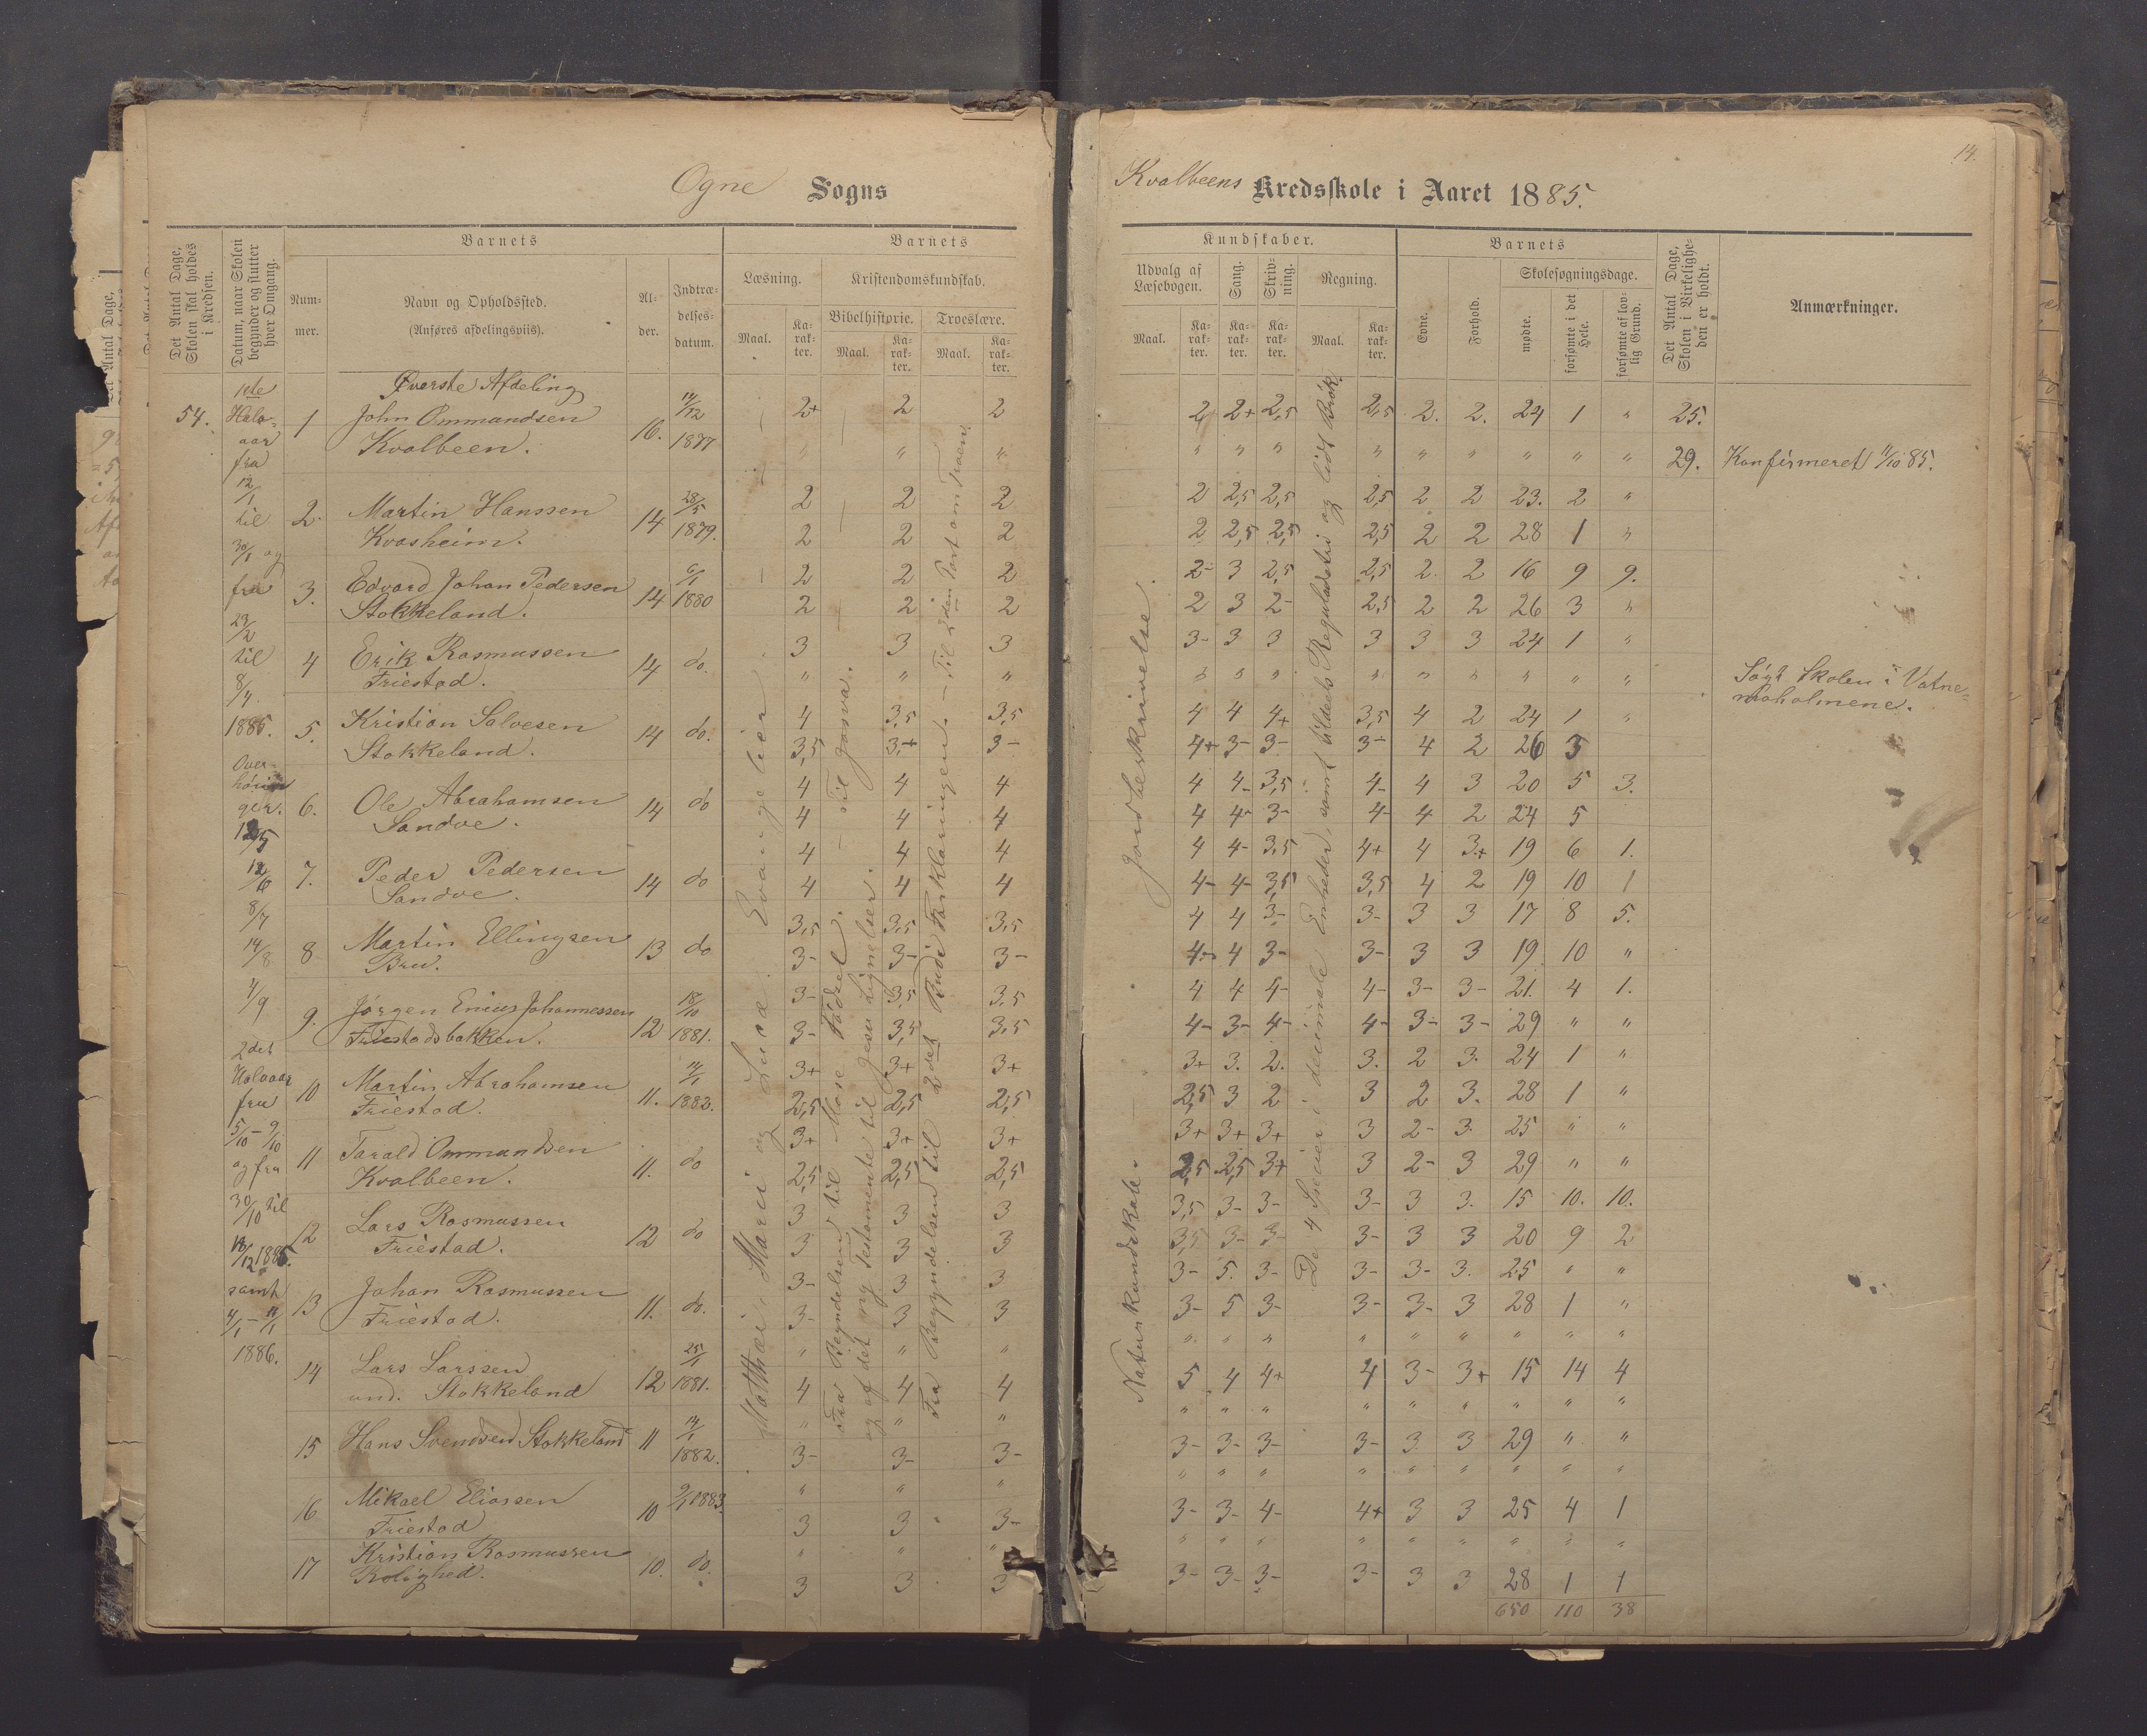 Ogne Sogns
Kvalbeens Kredsskole i Aaret 1885.
14.
Det Antal Dage, Skolen skal holdes i Kredsen.
Datum, naar Skolen begynder og slutter hver Omgang.
Barnets
Num-
mer.
Navn og Opholdssted.
(Anføres afdelingsviis).
Al-
der.
Indtræ-
delses-
datum.
Barnets
Læsning.
Kristendomskundskab.
Bibelhistorie.
Troeslære.
Maal.
Ka-
rak-
ter.
Maal.
Ka-
rak-
ter.
Maal.
Ka-
rak-
ter.
Kundskaber.
Udvalg af
Læsebogen.
Sang.
Skriv-
ning.
Regning.
Maal.
Ka-
rak-
ter.
Ka-
rak-
ter.
Ka-
rak-
ter.
Maal.
Ka-
rak-
ter.
Barnets
Evne.
Forhold.
Skolesøgningsdage.
mødte.
forsømte i det Hele.
forsømte af lov-
lig Grund.
Det Antal Dage, Skolen i Virkelighe-
den er holdt.
Anmærkninger.
54.
1ste
Halv-
aar
fra
12/1
til
30/1 og
fra
23/2
til
8/4
1885.
Over-
hørin
ger.
12/5
12/6
8/7
14/8
4/9
2det
Halvaar
fra
5/10 - 9/10
og fra
30/10 til
18/12 1885.
samt
4/1 - 11/1
1886.
Øverste Afdeling
1 John Ommandsen 16. 14/12 2+ 2 2 2 2+ 2,5 2,5 2. 2. 24 1 " 25.
Kvalbeen. 1877 " " " " " " " " " " " " 29. Konfirmeret 11/10 85.
2 Martin Hanssen 14 28/5 2 2 2 2 2,5 2,5 2,5 2 2 23. 2 "
Kvasheim. 1879. 2 2 2 2 2,5 2,5 2,5 2 2 28 1 "
3. Edvard Johan Pedersen 14 6/1 2 2 2 2- 3 2,5 2,5 2 2 16 9 9.
Stokkeland. 1880 2 2 2 2 3 2- 2,5 2 2 26 3 "
4 Erik Rasmussen 14 do. 3 3 3 3- 3 3 3 3 3 24 1 "
Friestad. " " " " " " " " " " " " Søgt Skolen i Vatne-
moholmene.
5. Kristian Salvesen 14 do. 4 3,5 3,5 4 4 4+ 3,5 4 2 24 1 "
Stokkeland. 3,5 3,+ 3- 4+ 3- 3- 3- 4 2 26 3
6. Ole Abrahamsen 14 do 4 4 4 4 4- 3,5 4- 4 3 20 5 3.
Sandve. 4 4 4 4 4- 3- 4- 4 2 24 5
7. Peder Pedersen 14 do 4 4 4 4 4- 3,5 4+ 4 3+ 19 6 1.
Sandve. 4 4 4 4- 4- 3,5 3,5 4 2 19 10 1
8 Martin Ellingsen 13 do 3,5 3,5 3,5 4 4 3- 3- 3 3 17 8 5.
Bru. 3- 3- 3- 4- 4 3- 3- 3 3 19 10 "
9. Jørgen Enius Johannessen 12 18/10 3- 3,5 3,5 4 4 4- 4- 3- 3- 21. 4 1.
Friestadsbakken. 1881. 3- 3,5 3,5 4- 3- 4- 4- 3- 3- 29 " "
10 Martin Abrahamsen 11. 14/1 3+ 3+ 3+ 3+ 3. 2. 3. 2 3. 24 1 "
Friestad. 1882. 2,5 2,5 2,5 2,5 3 2 3 2 3. 28 1 "
11 Tarald Ommundsen 11. do 3+ 3+ 3+ 3+ 3+ 3+ 3 2- 3. 25 " "
Kvalbeen. 2,5 2,5 2,5 2,5 2,5 3+ 3 2- 3 29 " "
12 Lars Rasmussen 12 do 3 3 3 3,5 3- 3- 3- 3 3. 15 10. 10.
Friestad. 3 3 3 3,5 3- 3- 3- 3 3 20 9 2
13 Johan Rasmussen 11. do. 3- 3 3 3- 5. 3- 3- 3- 3. 25 " "
Friestad. 3- 3 3 3- 5 3- 3- 3- 3 28 1 "
14 Lars Larssen 12 25/1 " " " " " " " " " " " "
und. Stokkeland 1881. 4 4 4 5 4 4+ 4 3- 3+ 15 14 4
15 Hans Svendsen Stokkeland 11 14/1 " " " " " " " " " " " "
1882. 3- 3- 3- 3- 3- 3- 3- 3 3 29 " "
16 Mikael Eliassen 10 9/1 1883. " " " " " " " " " " " "
Friestad 3 3 3- 3- 3- 4- 4+ 3 3 25 4 1
17 Kristian Rasmussen 10. do. " " " " " " " " " " " "
Rolighed. 3 3 3 3- 3- 3- 3- 3 3 28 1 1
650 110 38
Matthæi, Marci og Lucæ Evangelier.
Fra Begyndelsen til Mose Fødsel. - Til Josva.
og af det ny Testamente til Jesu Lignelser.
Fra Begyndelsen til 2det Bud i Forklaringen. - Til 2den Part om Troen.
Naturkundskab. - Jordbeskrivelse.
De 4 Specier i decimale Enheder, samt hildels Reguladetri og lidt Brøk.